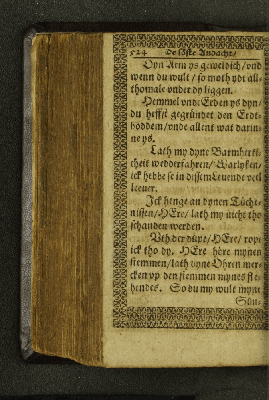 524 De söste Andacht/
Dyn Arm ys geweldich/vnd
wenn du wult / so moth ydt all-
thomale vnder dy liggen.
Hemmel vnde Erden ys dyn/
du heffst gegründet den Erdt-
böddem/vnde allent wat darin-
ne ys.
Lath my dyne Barmherti-
cheit wedderfahren/ Warlyken/
ick hebbe se in dissem Leuende veel
leeuer.
Ick hange an dynen Tüchte-
nissen/HEre/ lath my nicht tho
schanden werden.
Vth der düpe/HEre/ rope
ick tho dy. HEre höre mynen
stemmen/lath dyne Ohren mer-
cken vp den stemmen mynes fle-
hendes. So du my wult myne
Sün-